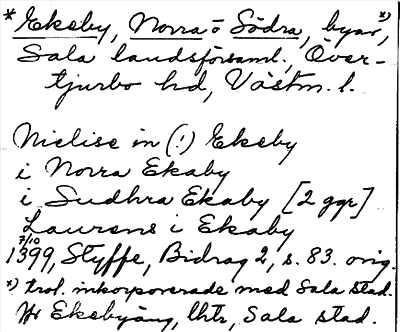 * Ekeby, Norra o Södra, byar, *)
Sala landsförsaml., Över-
tjurbo hd, Västm. l.
Nielise in (!) Ekeby
i Norra Ekaby
i Sudhra Ekaby [2 ggr]
Laurens i Ekaby
7/10
1399, Styffe, Bidrag 2, s. 83. orig.
*) trol. inkorporerade med Sala stad.
Jfr Ekebyäng, lhtr, Sala stad.